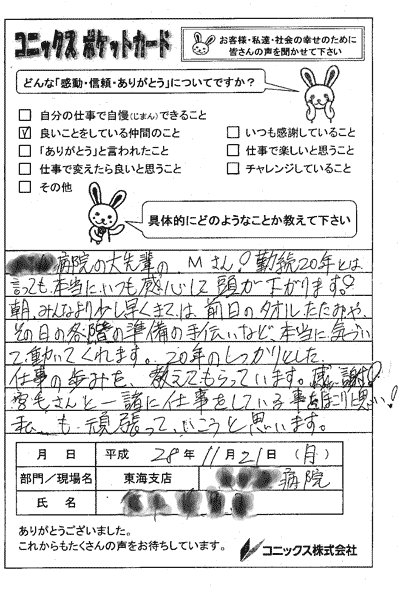 コニックス ポケットカード
お客様・私達・社会の幸せのために
皆さんの声を聞かせて下さい
どんな「感動・信頼・ありがとう」についてですか？
□ 自分の仕事で自慢(じまん)できること
☑ 良いことをしている仲間のこと
□ いつも感謝していること
□ 「ありがとう」と言われたこと
□ 仕事で楽しいと思うこと
□ 仕事で変えたら良いと思うこと
□ チャレンジしていること
□ その他
具体的にどのようなことか教えて下さい
病院の大先輩の、Mさん！勤続20年とは
言っても、本当にいつも感心して頭が下がります。
朝、みんなより少し早くきては、前日のタオルたたみや、
その日の各階の準備の手伝いなど、本当に気づい
て動いてくれます。20年のしっかりとした
仕事の歩みを、教えてもらっています。感謝！
さんと一諸に仕事をしている事をほこりに思い！
私も頑張っていこうと思います。
月 日 平成 28年 11月 21日 (月)
部門／現場名 東海支店 病院
氏 名
ありがとうございました。
これからもたくさんの声をお待ちしています。
コニックス株式会社